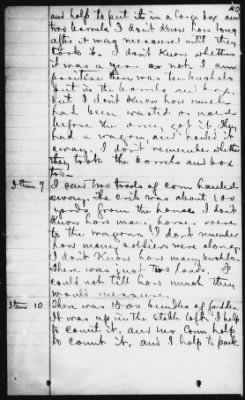 and help to put it in a large box and
two barrels I don't know how long
after it was measured until they
took it. I don't know whether
it was a year or not. I am
positive there was ten bushels
put in the barrels and box,
but I don't know how much
had been wasted or used
before the army got it. They
had a wagon and hauled it
away. I don't remember whether
they took the barrels and box
too.
Item 9 I seen two loads of corn hauled
away. The crib was about 100
yards from the house. I don't
know how many horses were
to the wagons. I don't remember
how many soldiers were along
I don't know how many bushels.
There was just two loads. I
could not tell how much they
would measure.
Item 10 There was 1500 bundles of fodder.
It was up in the stable loft. I help
to count it, and
help
to count it, and I help to pack